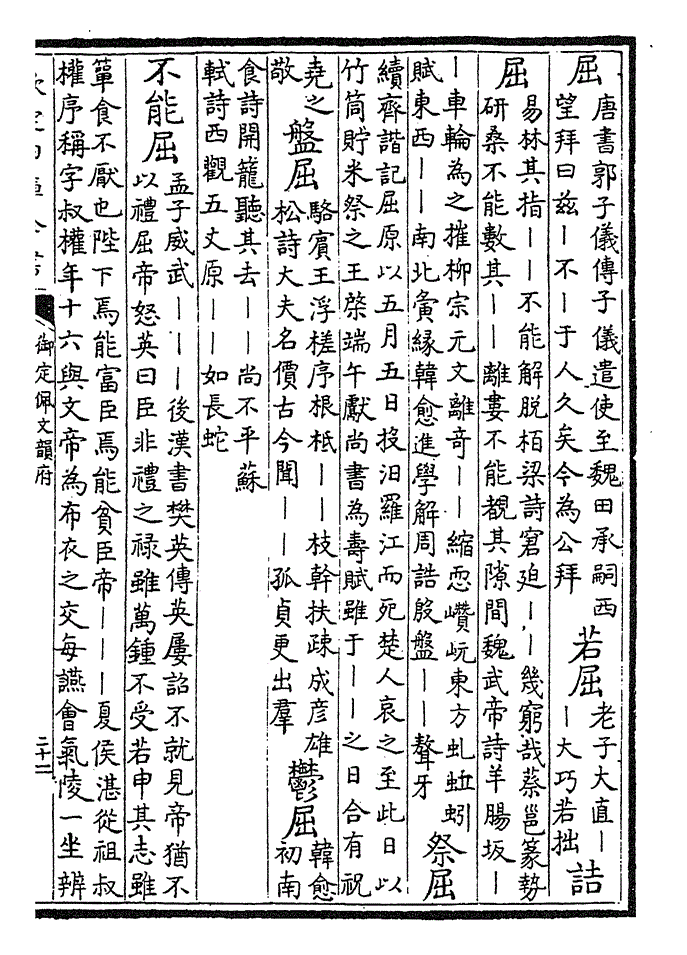 屈 唐書郭子儀傳子儀遣使至魏田承嗣西
望拜曰兹丨不丨于人久矣今為公拜
若屈 老子大直丨
丨大巧若拙
詰
屈 易林其指丨丨不能解脱栢梁詩窘廹丨丨幾窮哉蔡邕篆勢
研桑不能數其丨丨離婁不能覩其隙間魏武帝詩羊腸坂丨
丨車輪為之摧柳宗元文離竒丨丨縮恧巑岏東方虬蚯蚓
賦東西丨丨南北夤縁韓愈進學解周誥殷盤丨丨聱牙
祭屈
續齊諧記屈原以五月五日投汨羅江而死楚人哀之至此日以
竹筒貯米祭之王棨端午獻尚書為壽賦雖于丨丨之日合有祝
堯之
敬
盤屈 駱賓王浮槎序根柢丨丨枝幹扶疎成彦雄
松詩大夫名價古今聞丨丨孤貞更出羣
鬱屈 韓愈
初南
食詩開籠聽其去丨丨尚不平蘇
軾詩西觀五丈原丨丨如長蛇
不能屈 孟子威武丨丨丨後漢書樊英傳英屢詔不就見帝猶不
以禮屈帝怒英曰臣非禮之禄雖萬鍾不受若申其志雖
簞食不厭也陛下焉能富臣焉能貧臣帝丨丨丨夏侯湛從祖叔
權序稱字叔權年十六與文帝為布衣之交每讌會氣陵一坐辨
御定佩文韻府
二十二